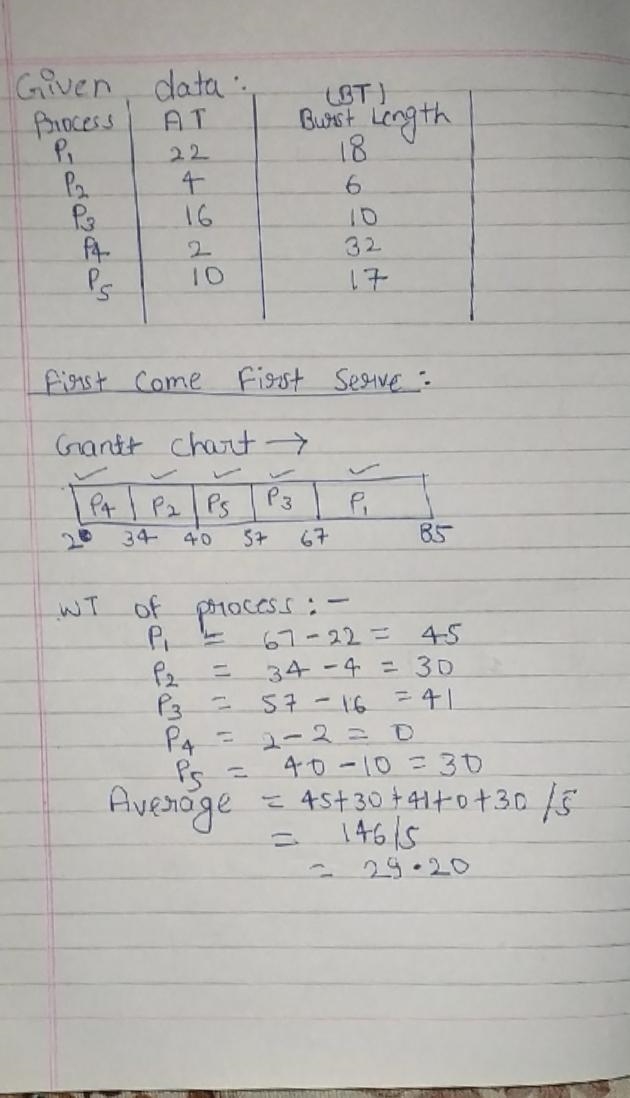 Given data:
(BT)
Process AT Burst Length
P1 22 18
P2 4 6
P3 16 10
P4 2 32
P5 10 17
First Come First Serve:
Gantt Chart →
P4 P2 P5 P3 P1
2 34 40 57 67 85
WT of process:-
P1 = 67-22 = 45
P2 = 34-4 = 30
P3 = 57-16 = 41
P4 = 2-2 = 0
P5 = 40-10 = 30
Average = 45+30+41+0+30/5
= 146/5
= 29.20